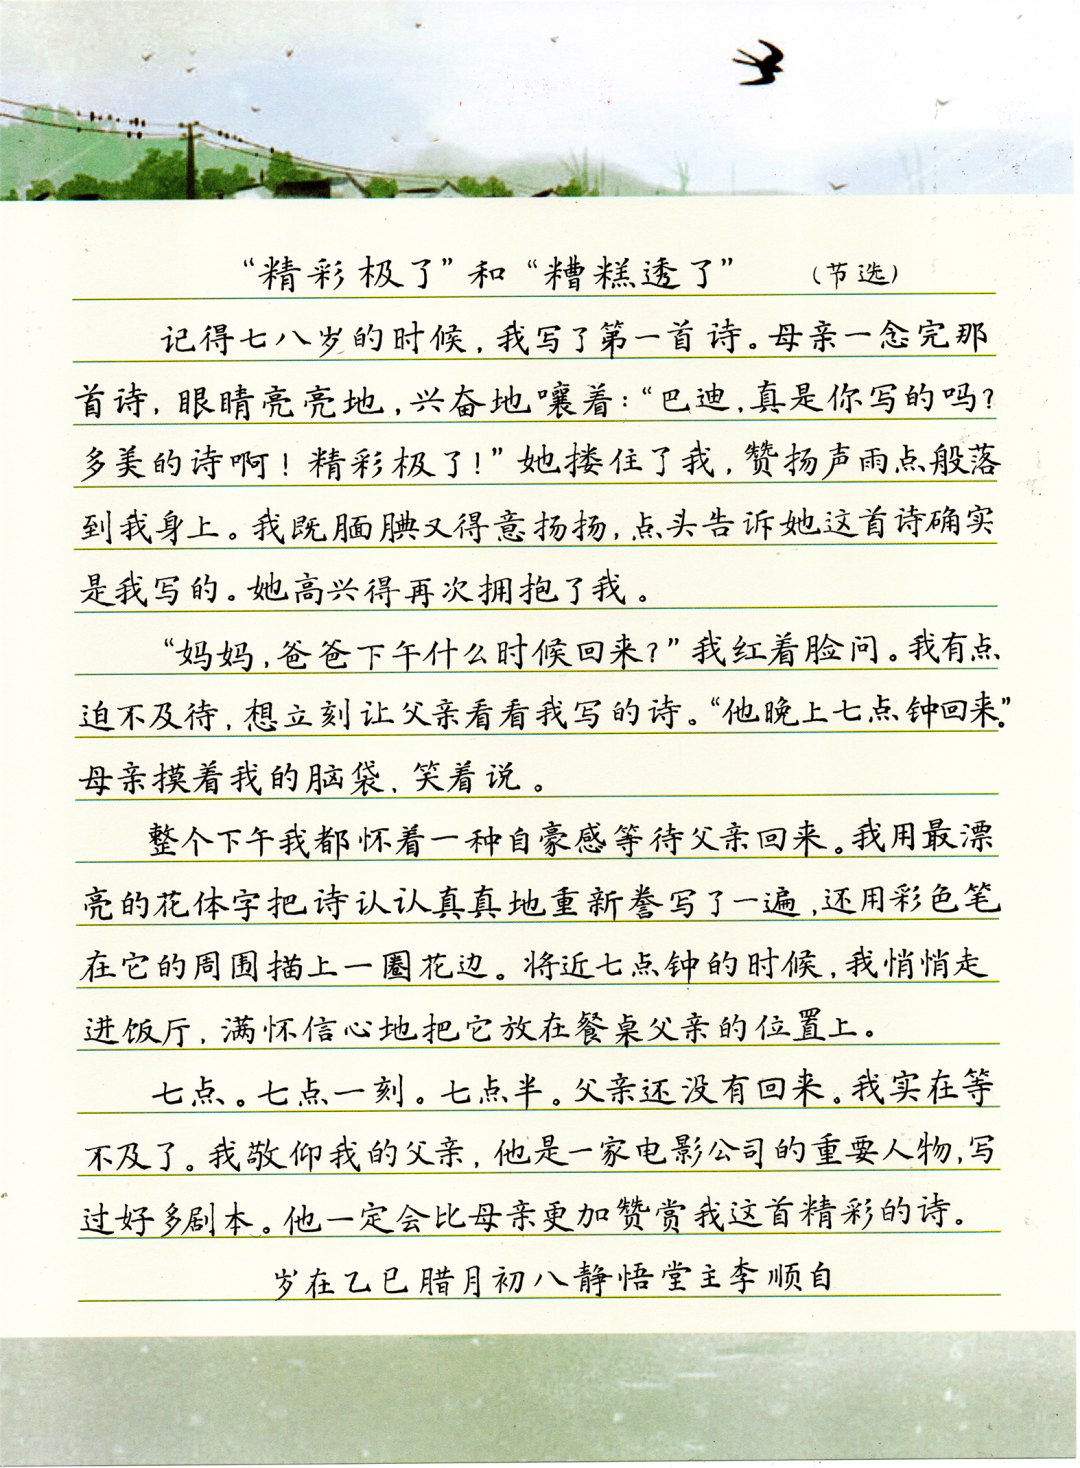 “精彩极了”和“糟糕透了” （节选）
记得七八岁的时候，我写了第一首诗。母亲一念完那
首诗，眼睛亮亮地，兴奋地嚷着：“巴迪，真是你写的吗？
多美的诗啊！精彩极了！”她搂住了我，赞扬声雨点般落
到我身上。我既腼腆又得意扬扬，点头告诉她这首诗确实
是我写的。她高兴得再次拥抱了我。
“妈妈，爸爸下午什么时候回来？”我红着脸问。我有点
迫不及待，想立刻让父亲看看我写的诗。“他晚上七点钟回来。”
母亲摸着我的脑袋，笑着说。
整个下午我都怀着一种自豪感等待父亲回来。我用最漂
亮的花体字把诗认认真真地重新誊写了一遍，还用彩色笔
在它的周围描上一圈花边。将近七点钟的时候，我悄悄走
进饭厅，满怀信心地把它放在餐桌父亲的位置上。
七点。七点一刻。七点半。父亲还没有回来。我实在等
不及了。我敬仰我的父亲，他是一家电影公司的重要人物，写
过好多剧本。他一定会比母亲更加赞赏我这首精彩的诗。
岁在乙巳腊月初八静悟堂主李顺自